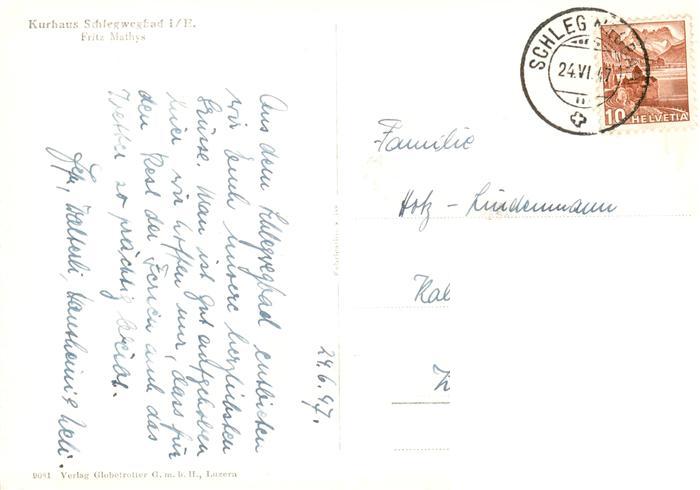 Kurhaus Schlegwegbad i/E.
Fritz Mathys
SCHLEGWEGBAD
24.VI.47
10 HELVETIA
Aus dem Schlegwegbad entbieten
wir Euch unsere herzlichsten
Grüsse. Man ist gut aufgehoben
hier wir hoffen nur, dass für
den Rest der Ferien auch das
Wetter so prächtig bleibt.
Walterli,
24.6.47.
Familie
Hotz-Lindenmann
9081 Verlag Globetrotter G.m.b.H., Luzern